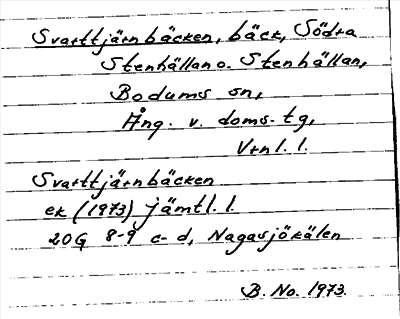 Svarttjärnbäcken, bäck, Södra
Stenhällan o. Stenhällan,
Bodums sn,
Ång. v. doms. tg,
Vrnl. l.
Svarttjärnbäcken
ek (1973) jämtl. l.
20G 8-9 c-d, Nagasjökälen
B. No. 1973.